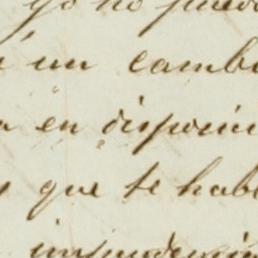 yo no pued
un camb
en disposic
que te hab